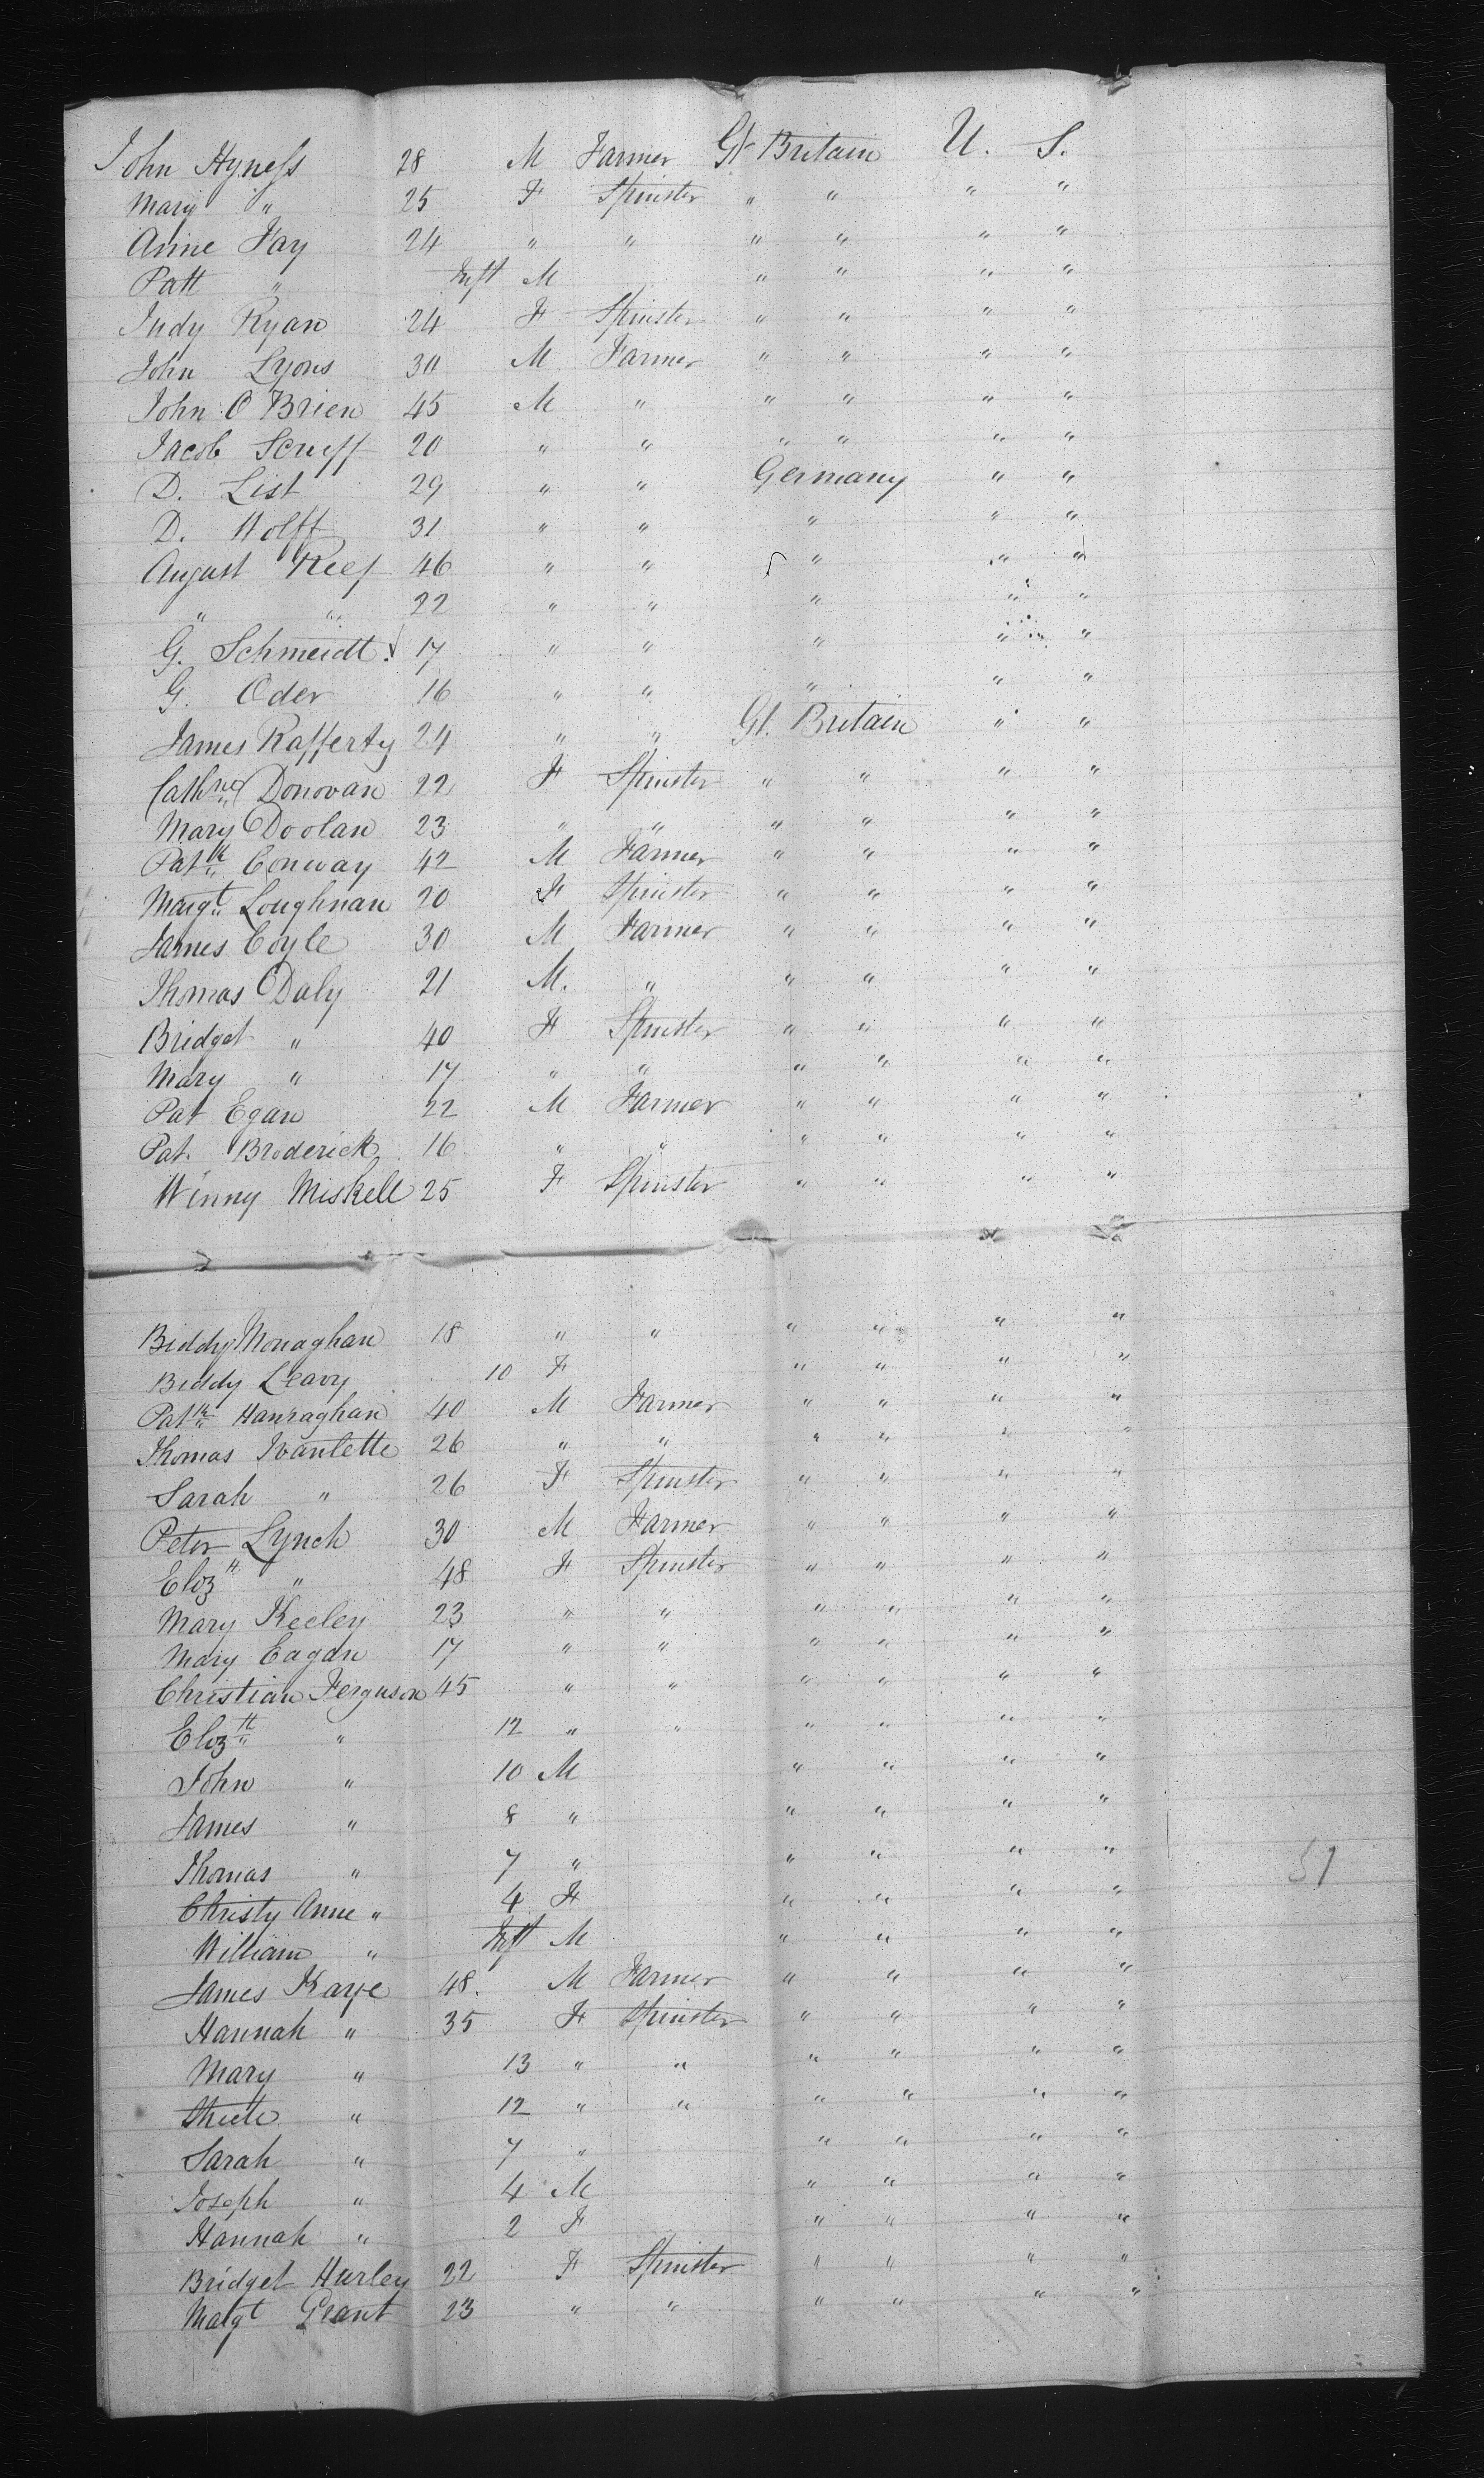 John Hyness 28 M Farmer Gt Britain U. S.
Mary " 25 F Spinster " " " "
Anne Fay 24 " " " " " "
Patt " Inft M " " " "
Judy Ryan 24 F Spinster " " " "
John Lyons 30 M Farmer " " " "
John O'Brien 45 M " " " " "
Jacob Scruff 20 " " " " " "
D. List 29 " " Germany " "
D. Wolff 31 " " " " "
August Reef 46 " " " " "
" " 22 " " " " "
G. Schmeidt. 17 " " " " "
G. Oder 16 " " " " "
James Rafferty 24 " " Gt. Britain " "
Cathne Donovan 22 F Spinster " " " "
Mary Doolan 23 " " " " " "
Patk Conway 42 M Farmer " " " "
Margt Loughnan 20 F Spinster " " " "
James Coyle 30 M Farmer " " " "
Thomas Daly 21 M. " " " " "
Bridget " 40 F Spinster " " " "
Mary " 17 " " " " " "
Pat Egan 22 M Farmer " " " "
Pat. Broderick 16 " " " " " "
Winny Miskell 25 F Spinster " " " "
Biddy Monaghan 18 " " " " " "
Biddy Leavy 10 F " " " "
Patk Hanraghan 40 M Farmer " " " "
Thomas Ivantette 26 " " " " " "
Sarah " 26 F Spinster " " " "
Peter Lynch 30 M Farmer " " " "
Elizth " 48 F Spinster " " " "
Mary Keeley 23 " " " " " "
Mary Eagan 17 " " " " " "
Christian Ferguson 45 " " " " " "
Elizth " 12 " " " " " "
John " 10 M " " " "
James " 8 " " " " "
Thomas " 7 " " " " "
Christy Anne " 4 F " " " "
William " Inft M " " " "
James Kaye 48. M Farmer " " " "
Hannah " 35 F Spinster " " " "
Mary " 13 " " " " " "
" 12 " " " " " "
Sarah " 7 " " " " "
Joseph " 4 M " " " "
Hannah " 2 F " " " "
Bridget Hurley 22 F Spinster " " " "
Margt Grant 23 " " " " " "
51